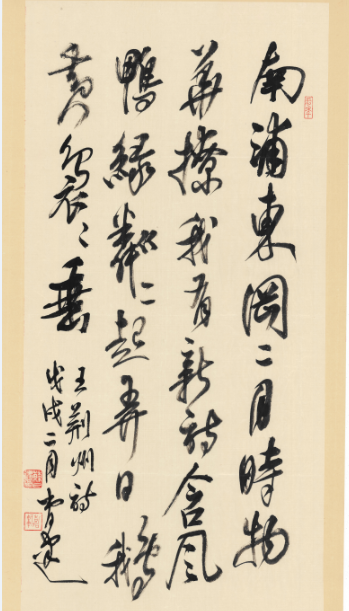 南浦東岡二月時物
華撩我有新詩含風
鴨綠粼〻起弄日鵝
黃裊〻垂
王荊州詩
戊戌二月